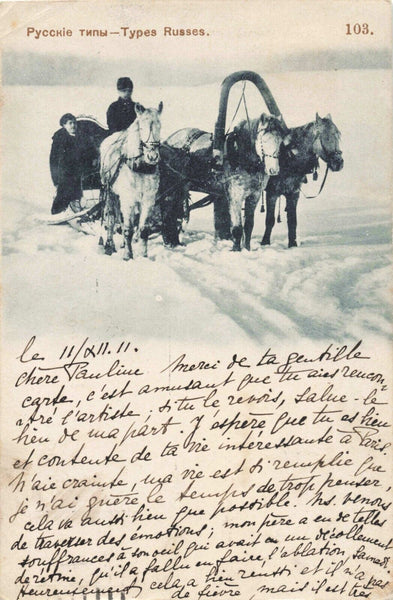 Русскіе типы—Types Russes.
103.
le 11/XII.11.
chère Pauline Merci de ta gentille
carte, c'est amusant que tu aies rencon
-tré l'artiste; si tu le revois, salue-le
bien de ma part. J'espère que tu es bien
et contente de ta vie intéressante à Paris.
N'aie crainte, ma vie est si remplie que
je n'ai guère le temps de trop penser,
cela va aussi bien que possible. Ns. venons
de traverser des émotions; mon père a eu de telles
souffrances à son oeil qui avait eu un décollement
de rétine, qu'il a fallu en faire l'ablation, Samedi.
Heureusement cela a bien réussi et il n'a pas
de fièvre mais il est très